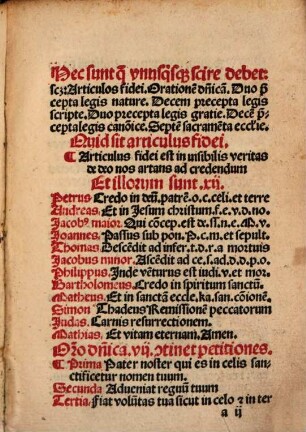 Hec sunt q̄ vnusq̄sq̄ scire debet:
scꝫ: Articulos fidei. Orationē dñicā. Duo p̄
cepta legis nature. Decem precepta legis
scripte. Duo precepta legis gratie. Decē p̄
cepta legis canōice. Septē sacramēta eccl'ie.
Quid sit articulus fidei.
¶ Articulus fidei est in visibilis veritas
de deo nos artans ad credendum
Et illorum sunt .xij.
Petrus. Credo in deū, patrē. o. c. celi. et terre
Andreas. Et in Jesum christum. f. e. v. d. no.
Jacobꝰ maior. Qui cōcep. est de. s̄. n. e. M. v.
Joannes. Passus sub pon. P. c. m. et sepult.
Thomas Descēdit ad infer. t. d. r. a mortuis
Jacobus minor. Ascēdit ad ce. s. ad. d. d. p. o.
Philippus. Inde vēturus est iudi. v. et mor.
Bartholomeus. Credo in spiritum sanctū.
Matheus. Et in sanctā eccle. ka. san. cōionē.
Simon Thadeus Remissionē peccatorum
Judas. Carnis resurrectionem.
Mathias. Et vitam eternam. Amen.
Orō dñica. vij. ꝯtinet petitiones.
¶ Prima Pater noster qui es in celis san-
ctificetur nomen tuum.
Secunda Adueniat regnū tuum
Tertia. Fiat volūtas tua sicut in celo ⁊ in ter
a ij